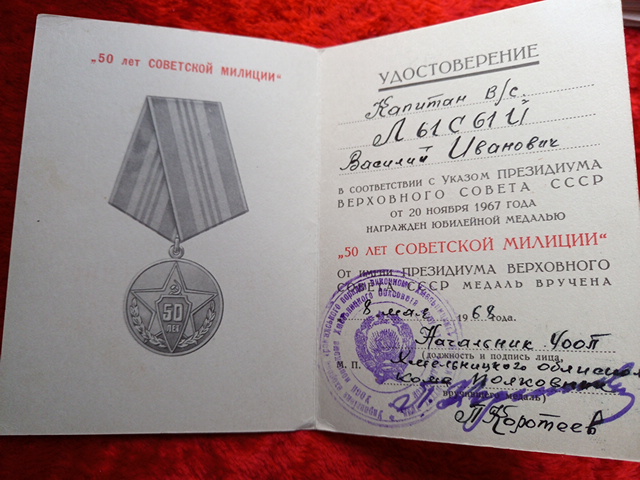 „50 лет СОВЕТСКОЙ МИЛИЦИИ“
50
ЛЕТ
УДОСТОВЕРЕНИЕ
Капитан в/с.
ЛЫСЫЙ
Василий Иванович
В СООТВЕТСТВИИ С УКАЗОМ ПРЕЗИДИУМА
ВЕРХОВНОГО СОВЕТА СССР
ОТ 20 НОЯБРЯ 1967 ГОДА
НАГРАЖДЕН ЮБИЛЕЙНОЙ МЕДАЛЬЮ
„50 ЛЕТ СОВЕТСКОЙ МИЛИЦИИ“
ОТ ИМЕНИ ПРЕЗИДИУМА ВЕРХОВНОГО
СОВЕТА СССР МЕДАЛЬ ВРУЧЕНА
8 мая 1968 года.
Начальник УООП
(должность и подпись лица,
М. П. Хмельницкого облиспол
кома полковник
вручившего медаль)
П. Коротеев